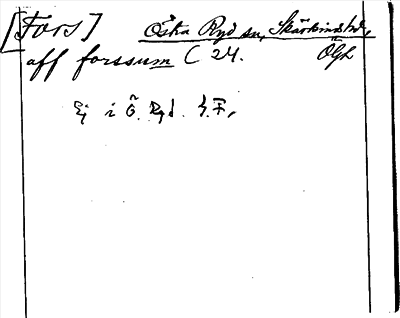 [Fors] Östra Ryd sn, Skärkinds hd,
aff forssum C 24. Ögl
Ej i Ö. Ryd. S.F.